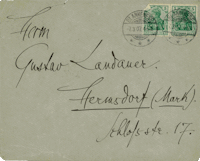 Herrn
Gustav Landauer.
Hermsdorf (Mark).
Schloß str. 17.